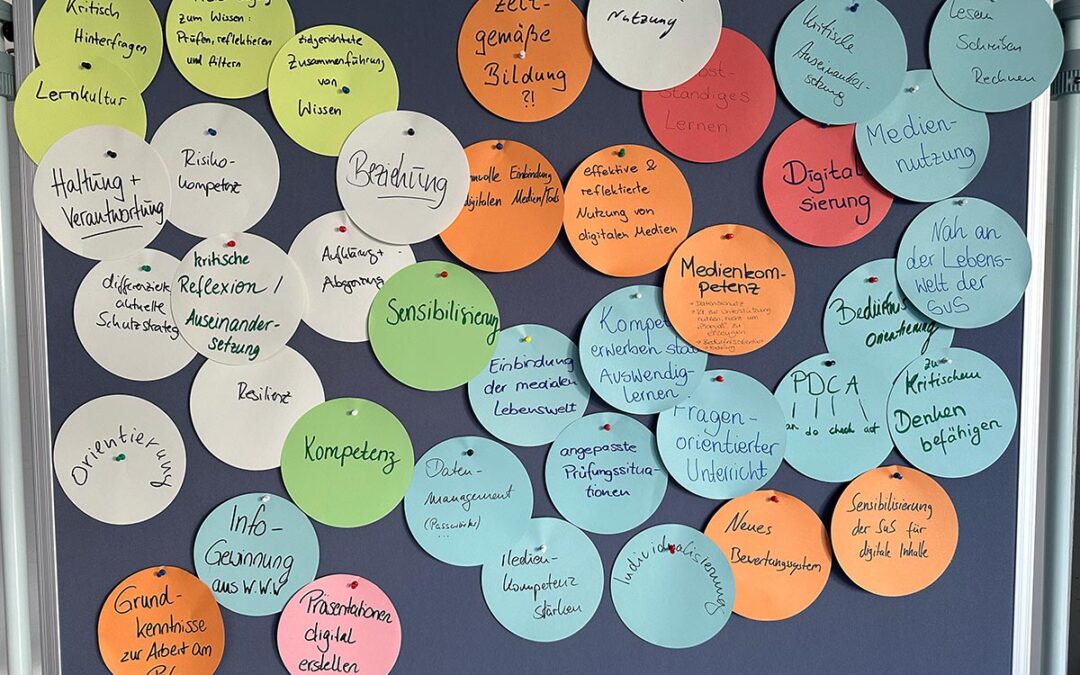 Kritisch
Hinterfragen
zum Wissen:
Prüfen, reflektieren
und filtern
zielgerichtete
Zusammenführung
von
Wissen
Lernkultur
Zeit-
gemäße
Bildung
?!
Nutzung
ständiges
Lernen
kritische
Auseinandes-
setzung
Lesen
Schreiben
Rechnen
Medien-
nutzung
Haltung +
Verantwortung
Risiko-
kompetenz
Beziehung
digitalen Medien/Tools
effektive &
reflektierte
Nutzung von
digitalen Medien
Digitali
sierung
Nah an
der Lebens-
welt der
SuS
differenzierte
aktuelle
Schutzstrateg
kritische
Reflexion /
Auseinander-
setzung
Aufklärung +
Abgrenzung
Sensibilisierung
Medienkom-
petenz
→ Datenschutz
Einbindung
der medialen
Lebenswelt
Kompet
erwerben statt
Auswendig-
lernen
Bedürfnis
orientierung
PDCA
an do check act
zu
Kritischem
Denken
befähigen
Resilienz
Orientierung
Kompetenz
Daten-
management
(Passwörter)
...
angepasste
Prüfungssitua-
tionen
Fragen-
orientierter
Unterricht
Info-
Gewinnung
aus W.W.W
Medien-
Kompetenz
stärken
Individualisierung
Neues
Bewertungssystem
Sensibilisierung
der SuS für
digitale Inhalte
Grund-
kenntnisse
zur Arbeit am
Präsentationen
digital
erstellen